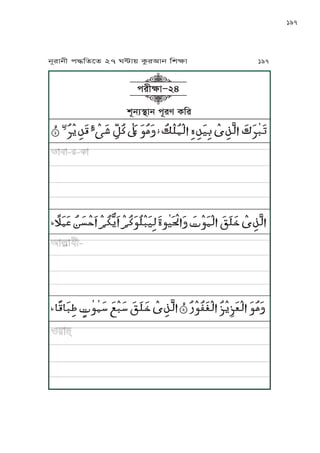 ১৯৭
নূরানী পদ্ধতিতে ২৭ ঘণ্টায় কুরআন শিক্ষা ১৯৭
পরীক্ষা-২৪
শূন্যস্থান পূরণ করি
تَبٰرَكَ الَّذِىْ بِيَدِهِ الْمُلْكُ ز وَهُوَ عَلٰى كُلِّ شَىْءٍ قَدِيْرُ ۙ
তাবা-র-কা
الَّذِىْ خَلَقَ الْمَوْتَ وَالْحَيٰوةَ لِيَبْلُوَكُمْ اَيُّكُمْ اَحْسَنُ عَمَلًا ط
আল্লাযী-
وَهُوَ الْعَزِيْزُ الْغَفُوْرُ ۙ الَّذِىْ خَلَقَ سَبْعَ سَمٰوٰتٍ طِبَاقًا ط
ওয়াহু